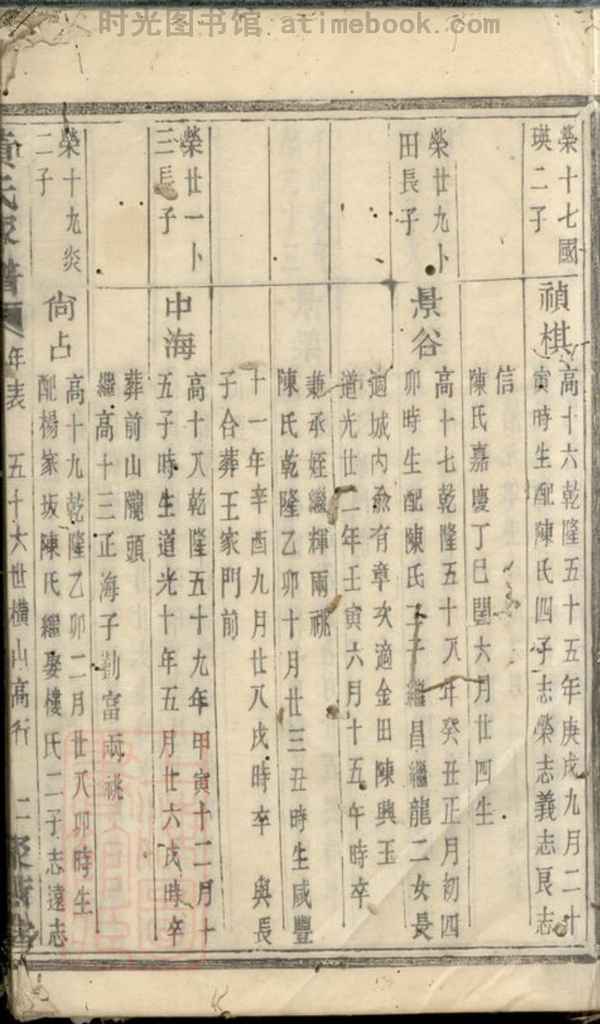 时光图书馆 atimebook.com
榮十七國
瑛二子
禎棋
高十六乾隆五十五年庚戌九月二十
寅時生配陳氏四子志榮志義志良志
信
陳氏嘉慶丁巳閏六月廿四生
榮廿九卜
田長子
景谷
高十七乾隆五十八年癸丑正月初四
卯時生配陳氏二子繼昌繼龍二女長
適城內俞有章次適金田陳興玉
道光廿二年壬寅六月十五午時卒
兼承姪繼輝兩祧
陳氏乾隆乙卯十月廿三丑時生咸豐
十一年辛酉九月廿八戌時卒 與長
子合葬王家門前
榮廿一卜
三長子
中海
高十八乾隆五十九年甲寅十二月十
五子時生道光十年五月廿六戌時卒
葬前山隴頭
繼高十三正海子勤富兩祧
榮十九炎
二子
尙占
高十九乾隆乙卯二月廿八卯時生
配楊家坂陳氏繼娶樓氏二子志遠志
黃氏家譜 年表 五十六世橫山高行 二